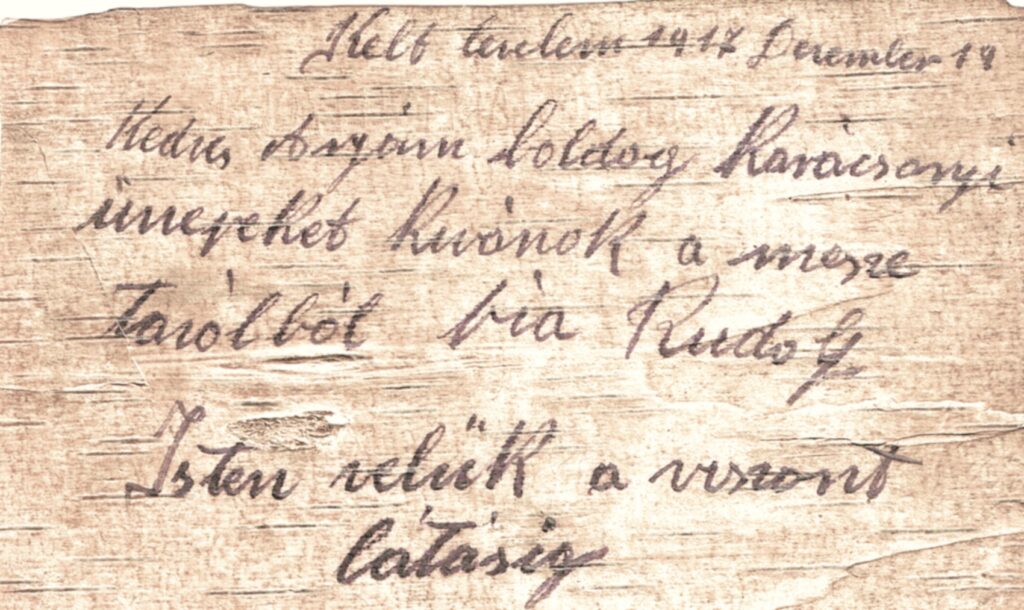 Kelt levelem 1917 December 19
Kedves Anyám boldog Karácsonyi
ünnepeket kivánok a messze
távolból fia Rudolf
Isten velük a viszont
látásig